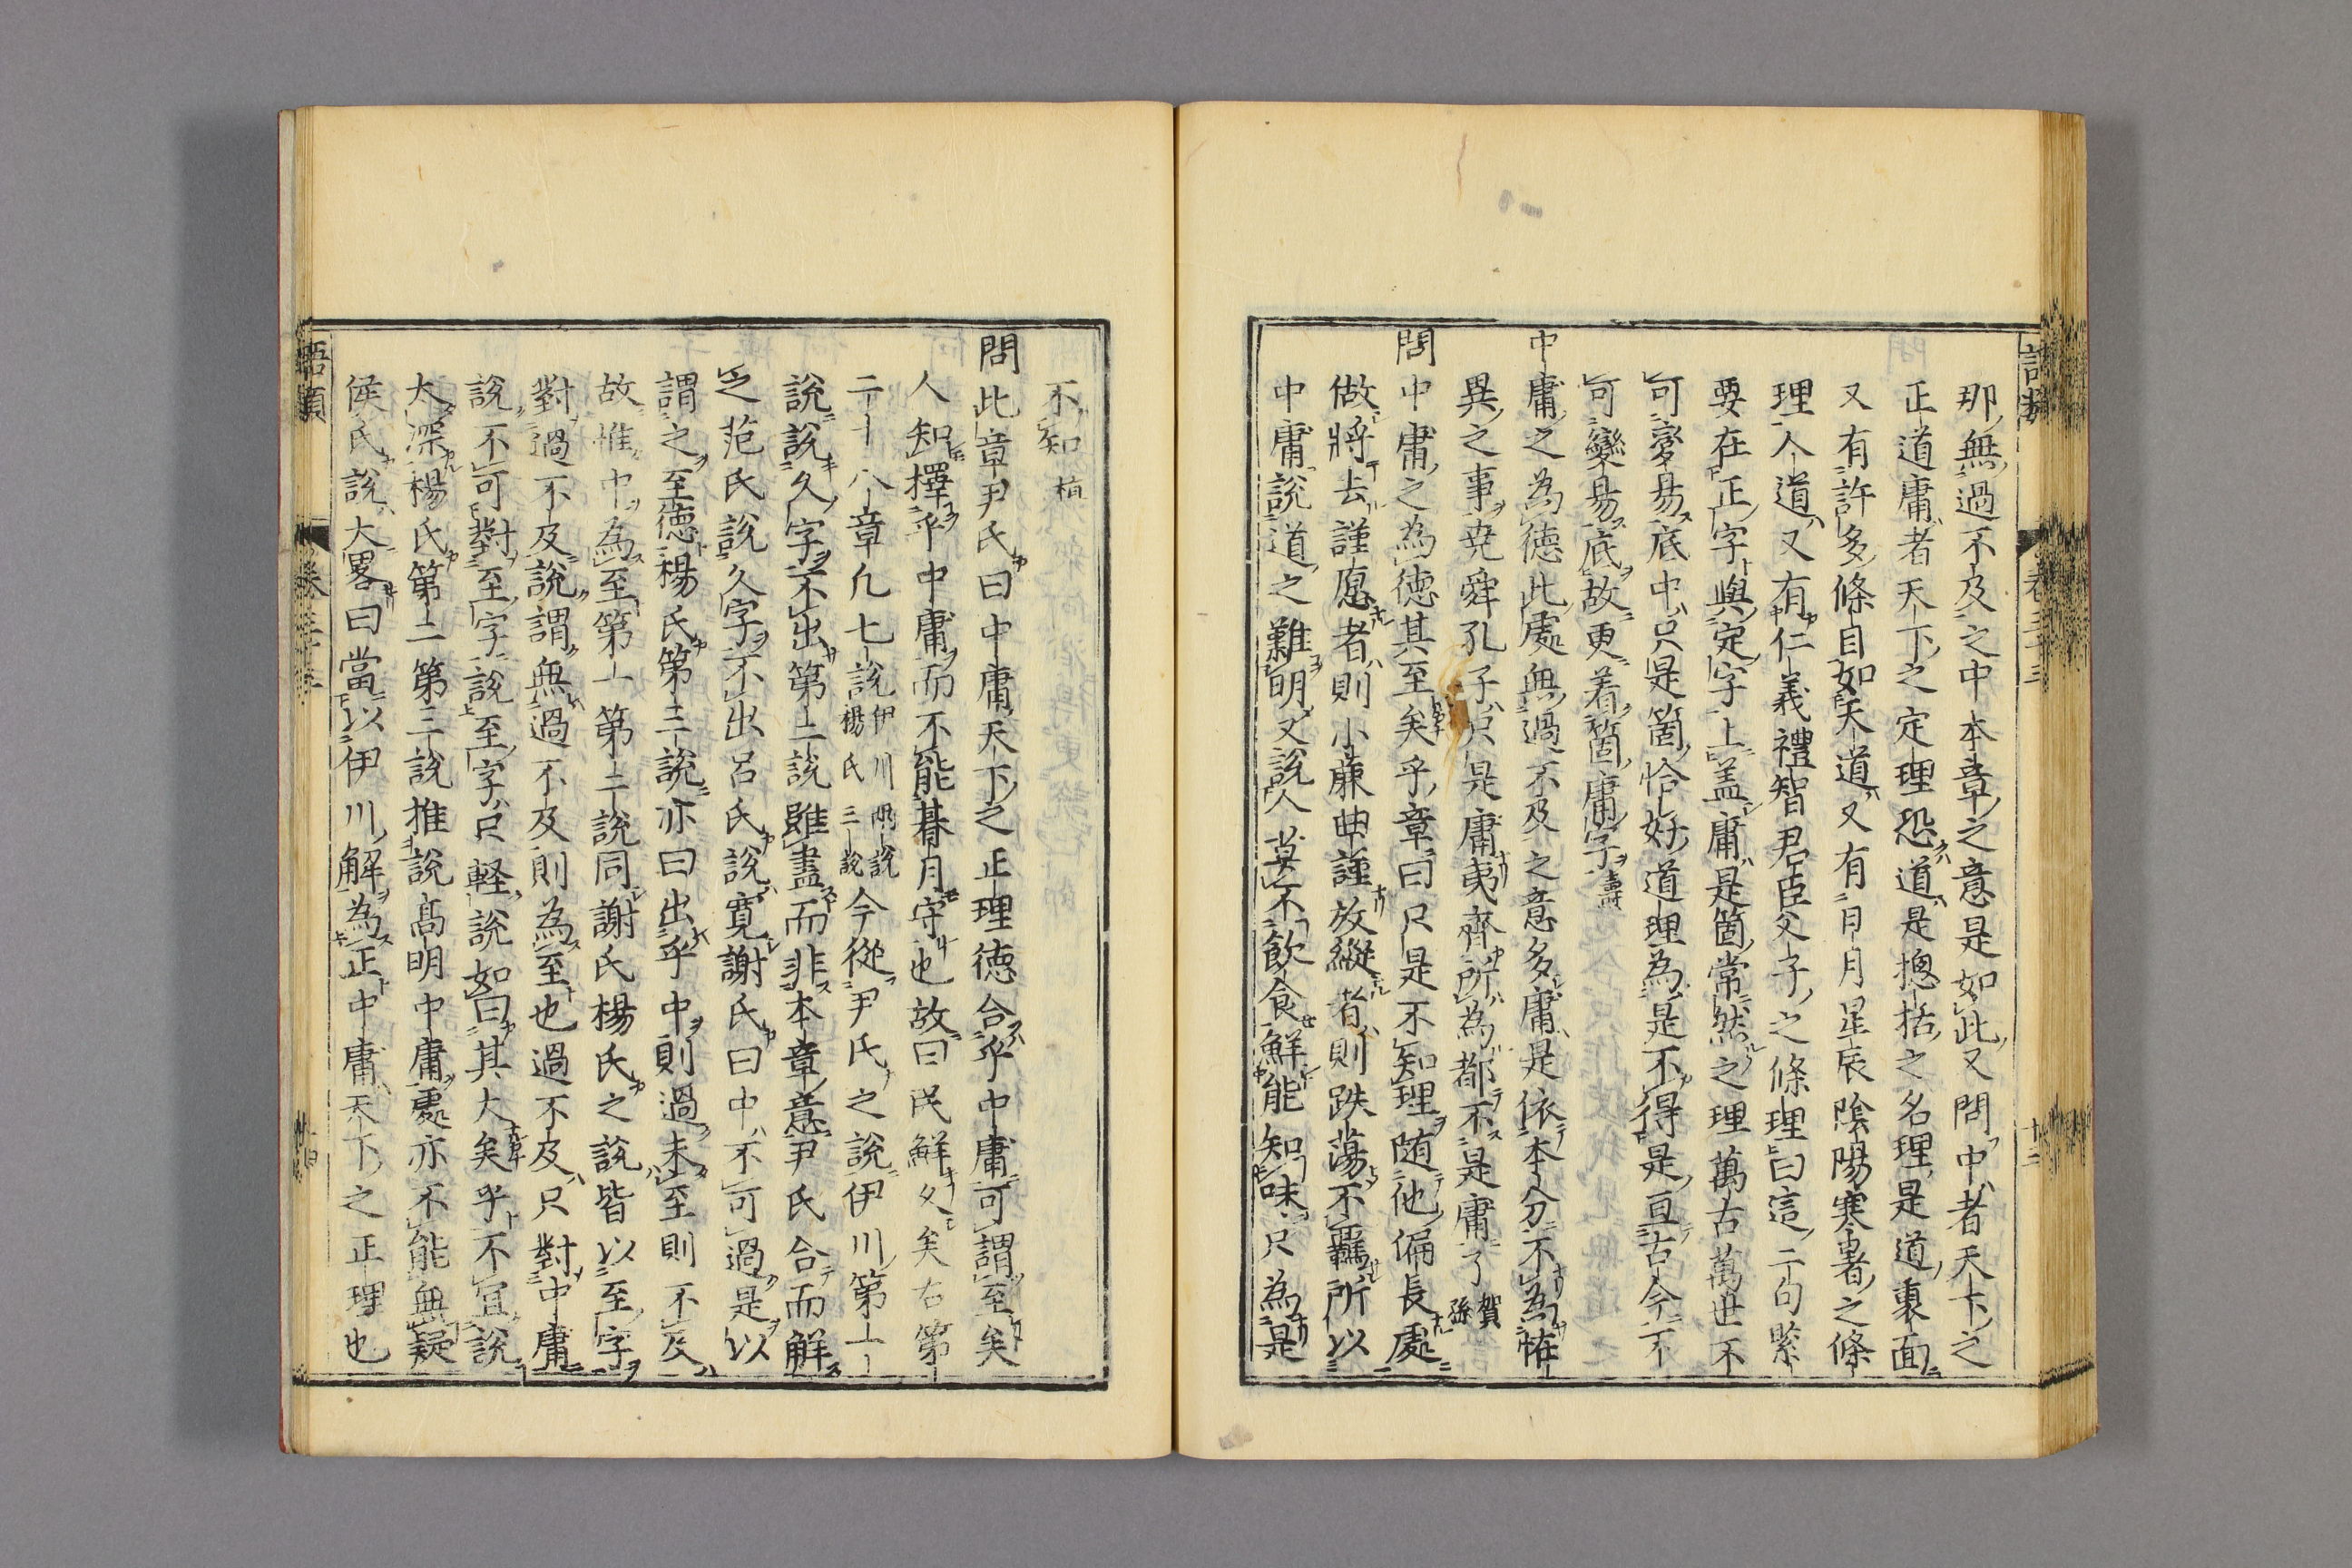 那無過不及之中本章之意是如此又問中者天下之
正道庸者天下之定理恐道是摠括之名理是道裏面
又有許多條目如天道又有日月星辰陰陽寒暑之條
理人道又有仁義禮智君臣父子之條理曰這二句緊
要在正字與定字上盖庸是箇常然之理萬古萬世不
可變易底中只是箇恰好道理為是不得是亘古今不
可變易底故更着箇庸字 燾
中庸之為德此處無過不及之意多庸是依本分不為恠
異之事堯舜孔子只是庸夷齊所為都不是庸了 賀孫
問中庸之為德其至矣乎章曰只是不知理随他偏長處
做將去謹愿者則小廉曲謹放縱者則跌蕩不羈所以
中庸說道之難明又說人莫不飲食鮮能知味只為是
不知 植
問此章尹氏曰中庸天下之正理德合乎中庸可謂至矣
人知擇乎中庸而不能朞月守也故曰民鮮久矣右第
二十八章凡七說 伊川兩說 楊氏三說 今從尹氏之說伊川第一
說說久字不出第二說雖盡而非本章意尹氏合而觧
之范氏說久字不出呂氏說寬謝氏曰中不可過是以
謂之至德楊氏第三說亦曰出乎中則過未至則不及
故惟中為至第一第二說同謝氏楊氏之說皆以至字
對過不及說謂無過不及則為至也過不及只對中庸
說不可對至字說至字只輕說如曰其大矣乎不宜說
太深楊氏第二第三說推說髙明中庸處亦不能無疑
侯氏說大畧曰當以伊川解為正中庸天下之正理也
語類
卷三十三